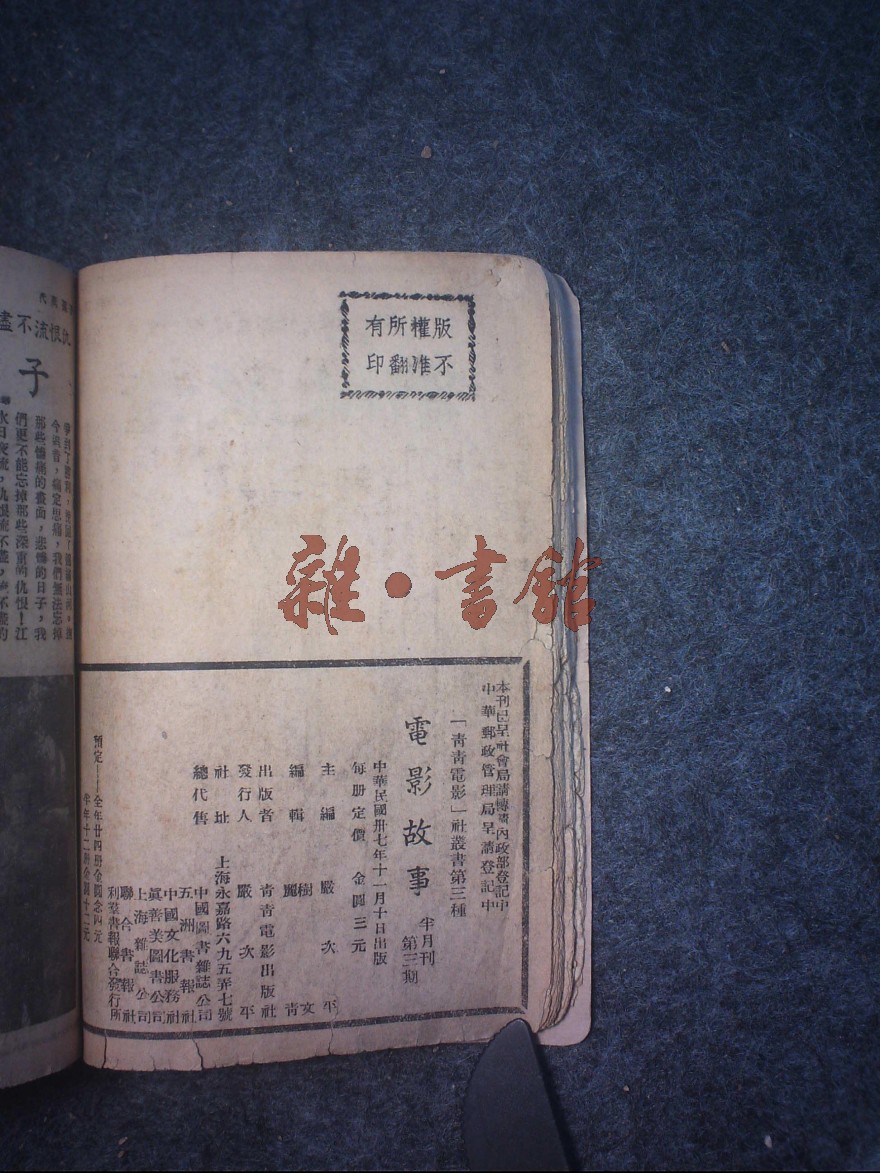 版權所有
不准翻印
雜·書館
本刊已呈社會局請轉呈內政部登記中
中華郵政管理局呈請登記中
「青青電影」社叢書第三種
電影故事
半月刊
第三期
中華民國卅七年十一月十日出版
每册定價 金圓三元
主編 嚴次平
編輯 樹文
麗青
出版者 青青電影出版社
發行人 嚴次平
社址 上海永嘉路六九五弄七號
總代售 中國圖書雜誌公司
五洲書報社
中國文化服務社
眞善美圖書公司
上海雜誌公司
聯合書報社
利羣書報聯合發行所
預定——全年廿四册金圓念四元
半年十二册金圓十二元
仇恨流不盡
子
今追昔,痛定思痛,我們無法忘掉
那些慘痛的畫面,悲慘的日子,我
們更不能忘掉那些深重的仇恨!江
水日夜流,仇恨流不盡,